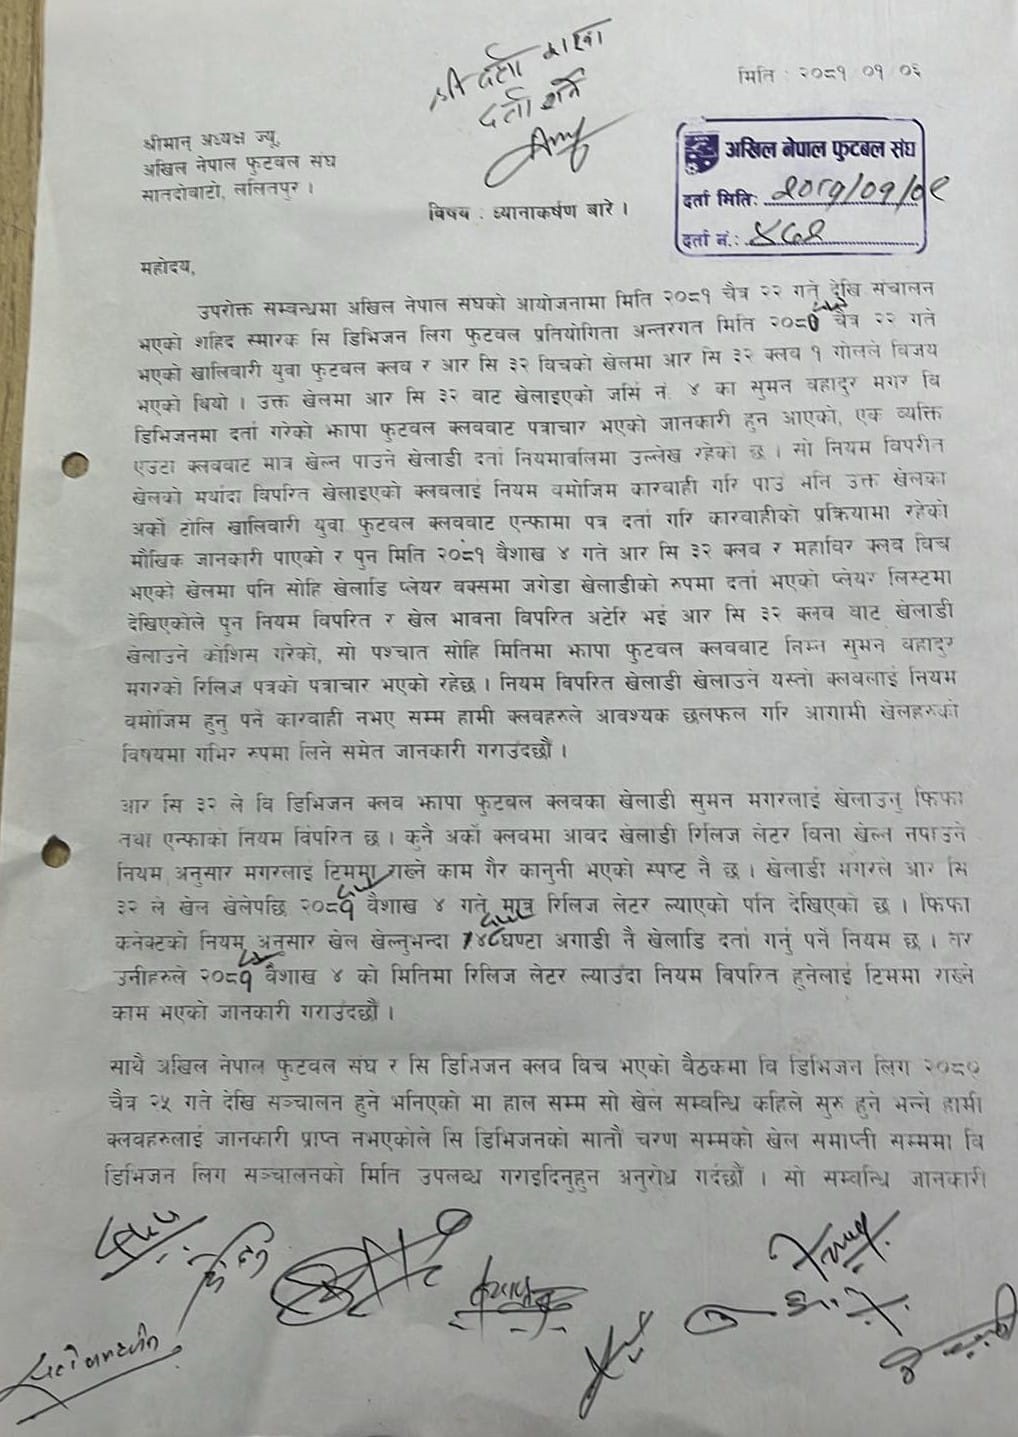 श्री दर्ता शाखा
दर्ता गर्ने
मिति : २०८१ ०१ ०६
श्रीमान् अध्यक्ष ज्यू,
अखिल नेपाल फुटवल संघ
सातदोवाटो, ललितपुर ।
अखिल नेपाल फुटबल संघ
दर्ता मिति: २०८१/०१/०९
दर्ता नं.:
विषय : ध्यानाकर्षण बारे ।
महोदय,
उपरोक्त सम्वन्धमा अखिल नेपाल संघको आयोजनामा मिति २०८१ चैत्र २२ गते देखि संचालन
भएको शहिद स्मारक सि डिभिजन लिग फुटवल प्रतियोगिता अन्तरगत मिति २०८० चैत्र २२ गते
भएको खालिवारी युवा फुटवल क्लव र आर सि ३२ विचको खेलमा आर सि ३२ क्लव १ गोलले विजय
भएको थियो । उक्त खेलमा आर सि ३२ वाट खेलाइएको जर्सि नं. ४ का सुमन वहादुर मगर वि
डिभिजनमा दर्ता गरेको झापा फुटवल क्लववाट पत्राचार भएको जानकारी हुन आएको, एक व्यक्ति
एउटा क्लववाट मात्र खेल्न पाउने खेलाडी दर्ता नियमावलिमा उल्लेख रहेको छ । सो नियम विपरीत
खेलको मर्यादा विपरित खेलाइएको क्लवलाई नियम वमोजिम कारवाही गरि पाउँ भनि उक्त खेलका
अर्को टोलि खालिवारी युवा फुटवल क्लववाट एन्फामा पत्र दर्ता गरि कारवाहीको प्रक्रियामा रहेको
मौखिक जानकारी पाएको र पुन मिति २०८१ वैशाख ४ गते आर सि ३२ क्लव र महाविर क्लव विच
भएको खेलमा पनि सोहि खेलाडि प्लेयर वक्समा जगेडा खेलाडीको रुपमा दर्ता भएको प्लेयर लिस्टमा
देखिएकोले पुन नियम विपरित र खेल भावना विपरित अटेरि भई आर सि ३२ क्लव वाट खेलाडी
खेलाउने कोशिस गरेको, सो पश्चात सोहि मितिमा झापा फुटवल क्लववाट निम्न सुमन वहादुर
मगरको रिलिज पत्रको पत्राचार भएको रहेछ । नियम विपरित खेलाडी खेलाउने यस्तो क्लवलाई नियम
वमोजिम हुनु पर्ने कारवाही नभए सम्म हामी क्लवहरुले आवश्यक छलफल गरि आगामी खेलहरुको
विषयमा गंभिर रुपमा लिने समेत जानकारी गराउँदछौं ।
आर सि ३२ ले वि डिभिजन क्लव झापा फुटवल क्लवका खेलाडी सुमन मगरलाई खेलाउनु फिफा
तथा एन्फाको नियम विपरित छ । कुनै अर्को क्लवमा आवद्ध खेलाडी रिलिज लेटर विना खेल्न नपाउने
नियम अनुसार मगरलाई टिममा राख्ने काम गैर कानुनी भएको स्पष्ट नै छ । खेलाडी मगरले आर सि
३२ ले खेल खेलेपछि २०८१ वैशाख ४ गते मात्र रिलिज लेटर ल्याएको पनि देखिएको छ । फिफा
कनेक्टको नियम अनुसार खेल खेल्नुभन्दा ४८ घण्टा अगाडी नै खेलाडि दर्ता गर्नु पर्ने नियम छ । तर
उनीहरुले २०८१ वैशाख ४ को मितिमा रिलिज लेटर ल्याउँदा नियम विपरित हुनेलाई टिममा राख्ने
काम भएको जानकारी गराउँदछौं ।
साथै अखिल नेपाल फुटवल संघ र सि डिभिजन क्लव विच भएको वैठकमा वि डिभिजन लिग २०८०
चैत्र २५ गते देखि सञ्चालन हुने भनिएको मा हाल सम्म सो खेल सम्वन्धि कहिले सुरु हुने भन्ने हामी
क्लवहरुलाई जानकारी प्राप्त नभएकोले सि डिभिजनको सातौं चरण सम्मको खेल समाप्ती सम्ममा वि
डिभिजन लिग सञ्चालनको मिति उपलव्ध गराइदिनुहुन अनुरोध गर्दछौं । सो सम्वन्धि जानकारी